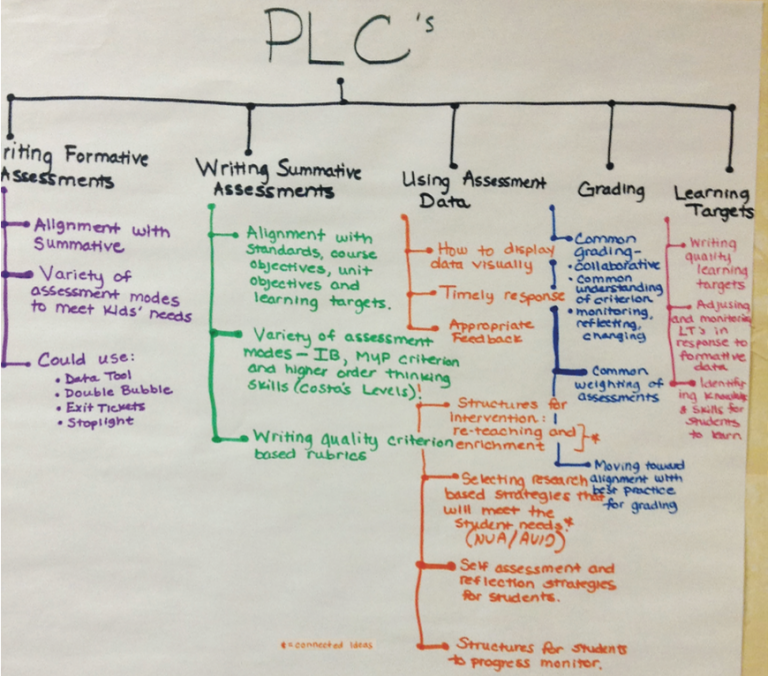 PLC's
riting Formative
Assessments
Alignment with
Summative
Variety of
assessment modes
to meet kids' needs
Could use:
• Data Tool
• Double Bubble
• Exit Tickets
• Stoplight
Writing Summative
Assessments
Alignment with
standards, course
objectives, unit
objectives and
learning targets.
Variety of assessment
modes - IB, MYP criterion
and higher order thinking
skills (Costa's Levels)!
Writing quality criterion
based rubrics
Using Assessment
Data
How to display
data visually
Timely response
Appropriate
Feedback
Structures for
Intervention:
re-teaching and
enrichment *
Selecting research
based strategies that
will meet the
student needs.*
(NUA/AVID)
Self assessment and
reflection strategies
for students.
Structures for students
to progress monitor.
Grading
Common
grading-
• collaborative
• common
understanding
of criterion
• monitoring,
reflecting,
changing
Common
weighting of
assessments
Moving toward
alignment with
best practice
for grading
Learning
Targets
Writing
quality
learning
targets
Adjusing
and monitoring
LT's in
response to
formative
data
Identify
ing knowledge
& skills for
students
to learn
*=connected ideas